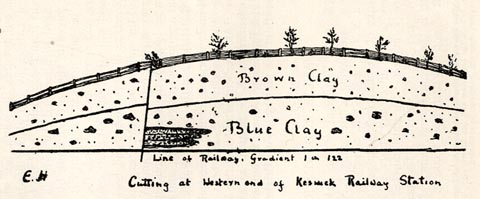 Brown Clay
Blue Clay
Line of Railway, Gradient 1 in 122
E. H
Cutting at Western end of Keswick Railway Station